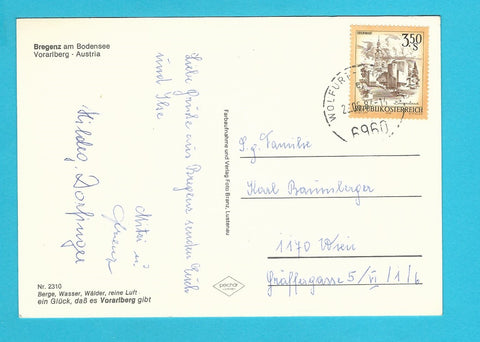 Bregenz am Bodensee
Vorarlberg - Austria
Liebe Grüße aus Bregenz senden Euch
und Ihre
Mitzi u.
Hildeg. Dorfinger
Nr. 2310
Berge, Wasser, Wälder, reine Luft
ein Glück, daß es Vorarlberg gibt
Farbaufnahme und Verlag Foto Branz, Lustenau
3.50
S
REPUBLIK ÖSTERREICH
WOLFURT
6960
S.g. Familie
Karl Baumberger
1170 Wien
Gräffergasse 5/VI/1/6